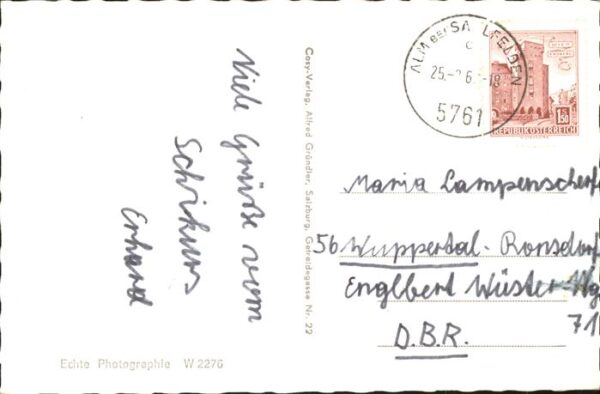 Viele Grüße vom
Schikurs
Erhard
Cosy-Verlag, Alfred Gründler, Salzburg, Getreidegasse Nr. 22
Echte Photographie W 2276
ALM BEI SAALFELDEN
c
5761
1.50
REPUBLIK ÖSTERREICH
Maria Lampenscherf
56 Wuppertal-Ronsdorf
Englbert Wüster-Wg
71
D.B.R.